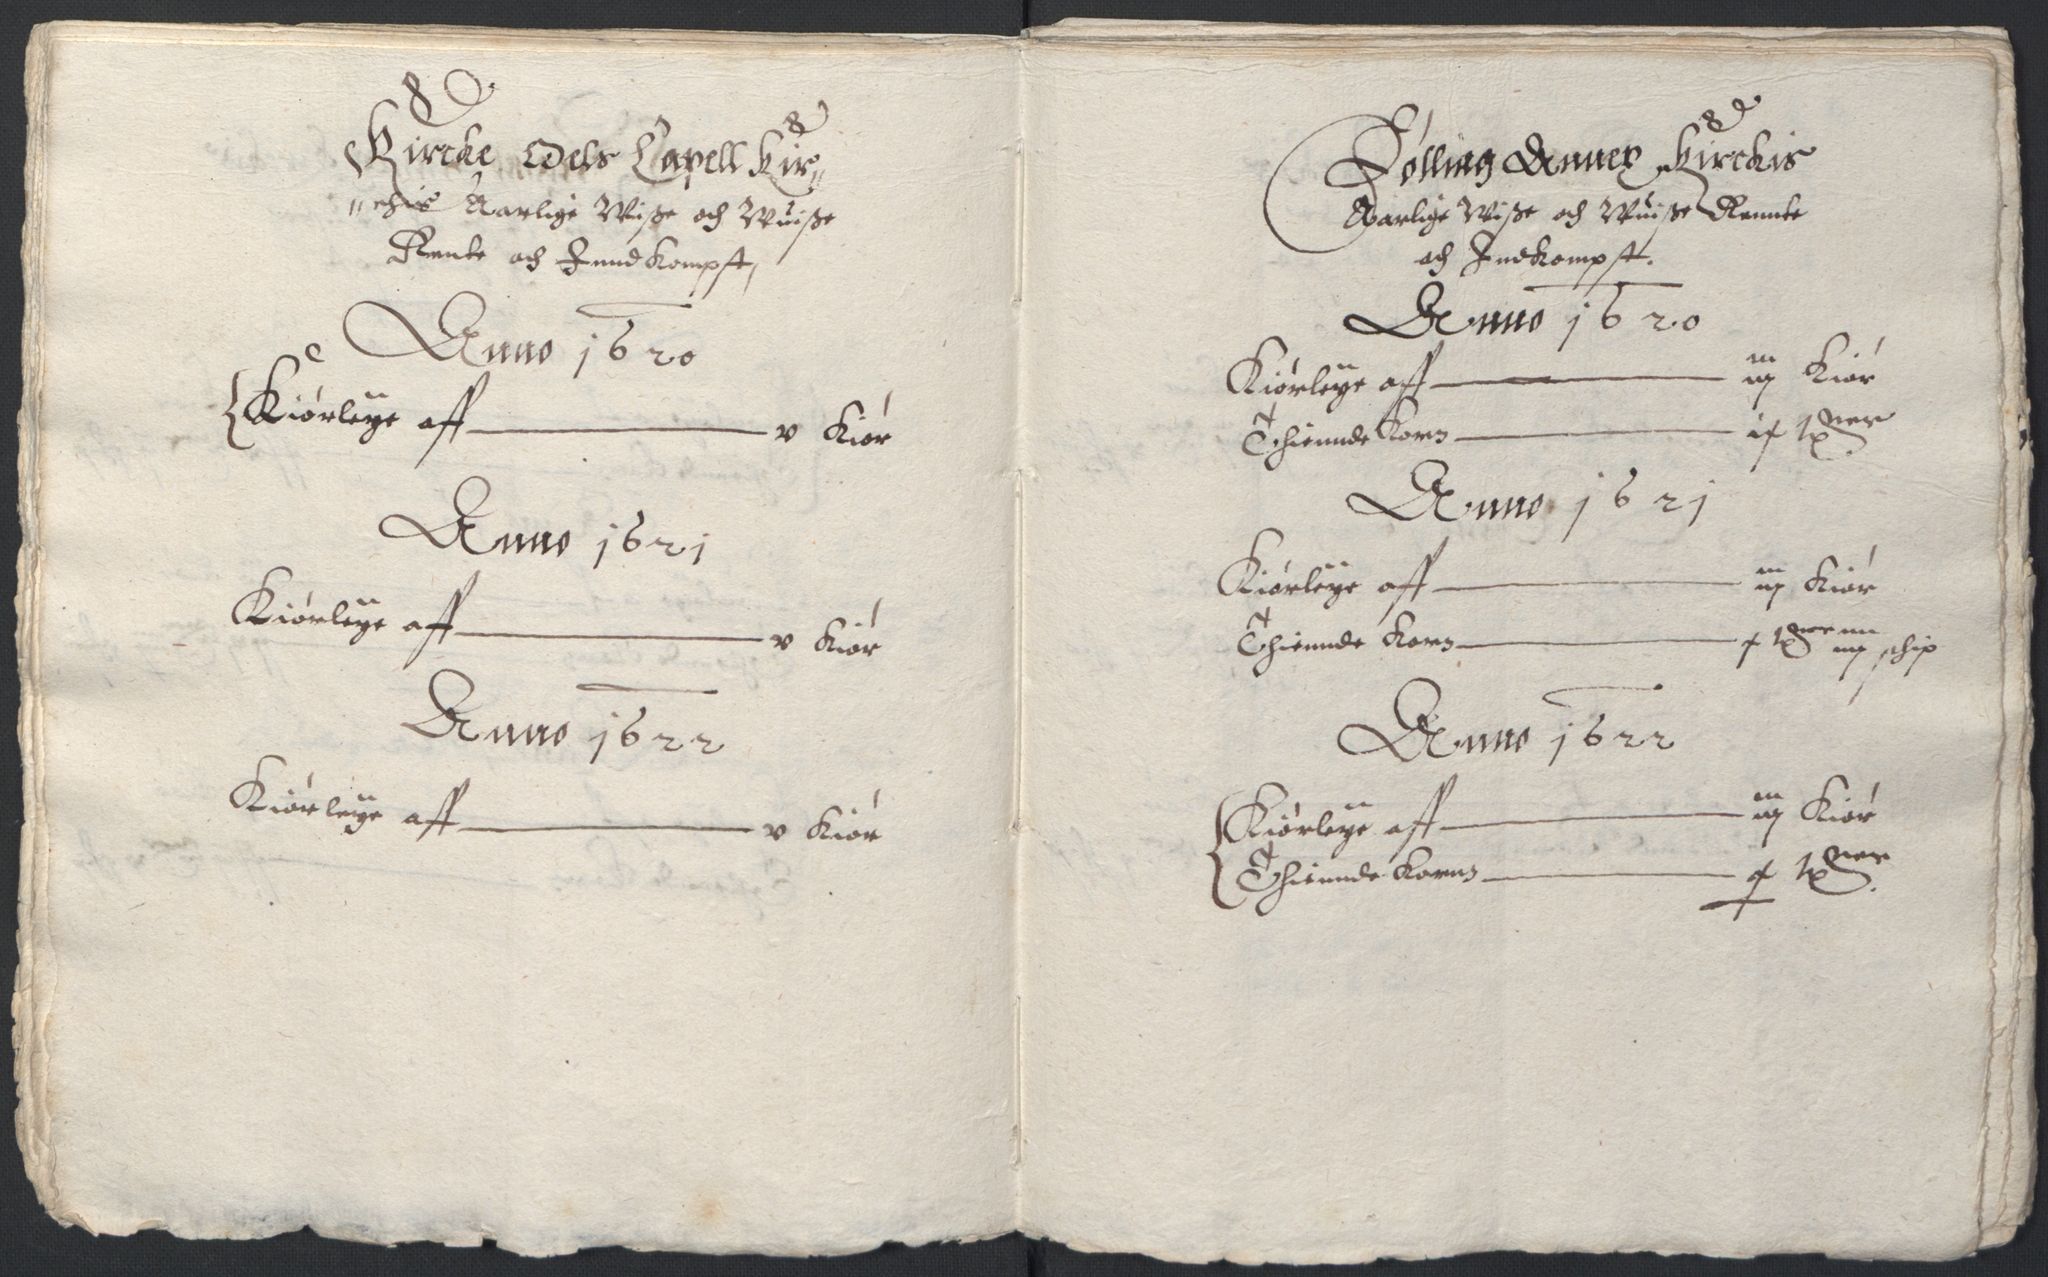 Kircke Oels Capell Kir„
„chis Aarlige Wisse och Wuisse
Rente och Inndkompst,
Anno 1620
Kiörleye aff v Kiör
Anno 1621
Kiörleye aff v Kiör
Anno 1622
Kiörleye aff v Kiör
Solling Annex Kirckis
Aarlige Wisse och Wuisse Rennte
och Indkompst.
Anno 1620
Kiörleye aff Kiör
Thiennde Korn
Anno 1621
Kiörleye aff Kiör
Thiennde Korn schip
Anno 1622
Kiörleye aff Kiör
Thiennde Kornn